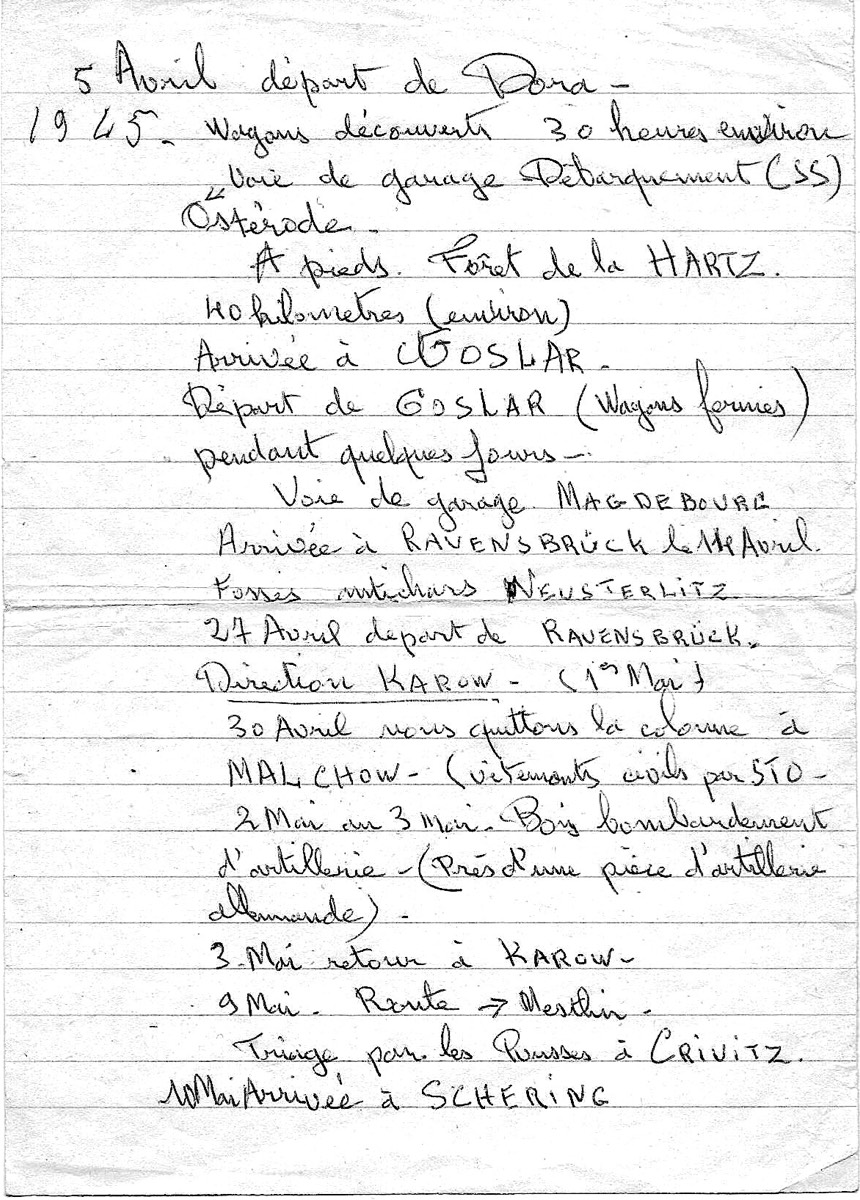 5 Avril départ de Dora -
1945. Wagons découverts 30 heures environ
Voie de garage Débarquement (SS)
Ostérode.
A pieds. Forêt de la HARTZ.
40 kilometres (environ)
Arrivée à GOSLAR -
Départ de GOSLAR (Wagons fermés)
pendant quelques jours -
Voie de garage MAGDEBOURG
Arrivée à RAVENSBRÜCK le 14 Avril.
Fossés antichars NEUSTERLITZ
27 Avril depart de RAVENSBRÜCK.
Direction KAROW - (1er Mai)
30 Avril nous quittons la colonne à
MALCHOW - (vêtements civils par STO -
2 Mai au 3 Mai - Bois bombardement
d'artillerie - (Près d'une pièce d'artillerie
allemande) -
3 Mai retour à KAROW -
9 Mai - Route →
Triage par les Russes à CRIVITZ.
10 Mai Arrivée à SCHERING